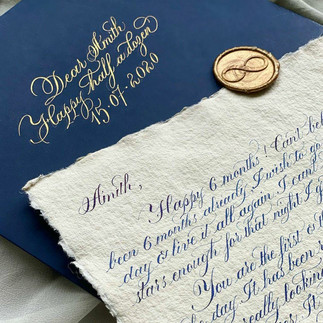 Dear Amith
Happy half a dozen
15·07·2020
Amith,
Happy 6 months! Can't bel
been 6 months already. I wish to go
day & live it all again. I can't
stars enough for that night I
You are the first
day. It has been
really looking